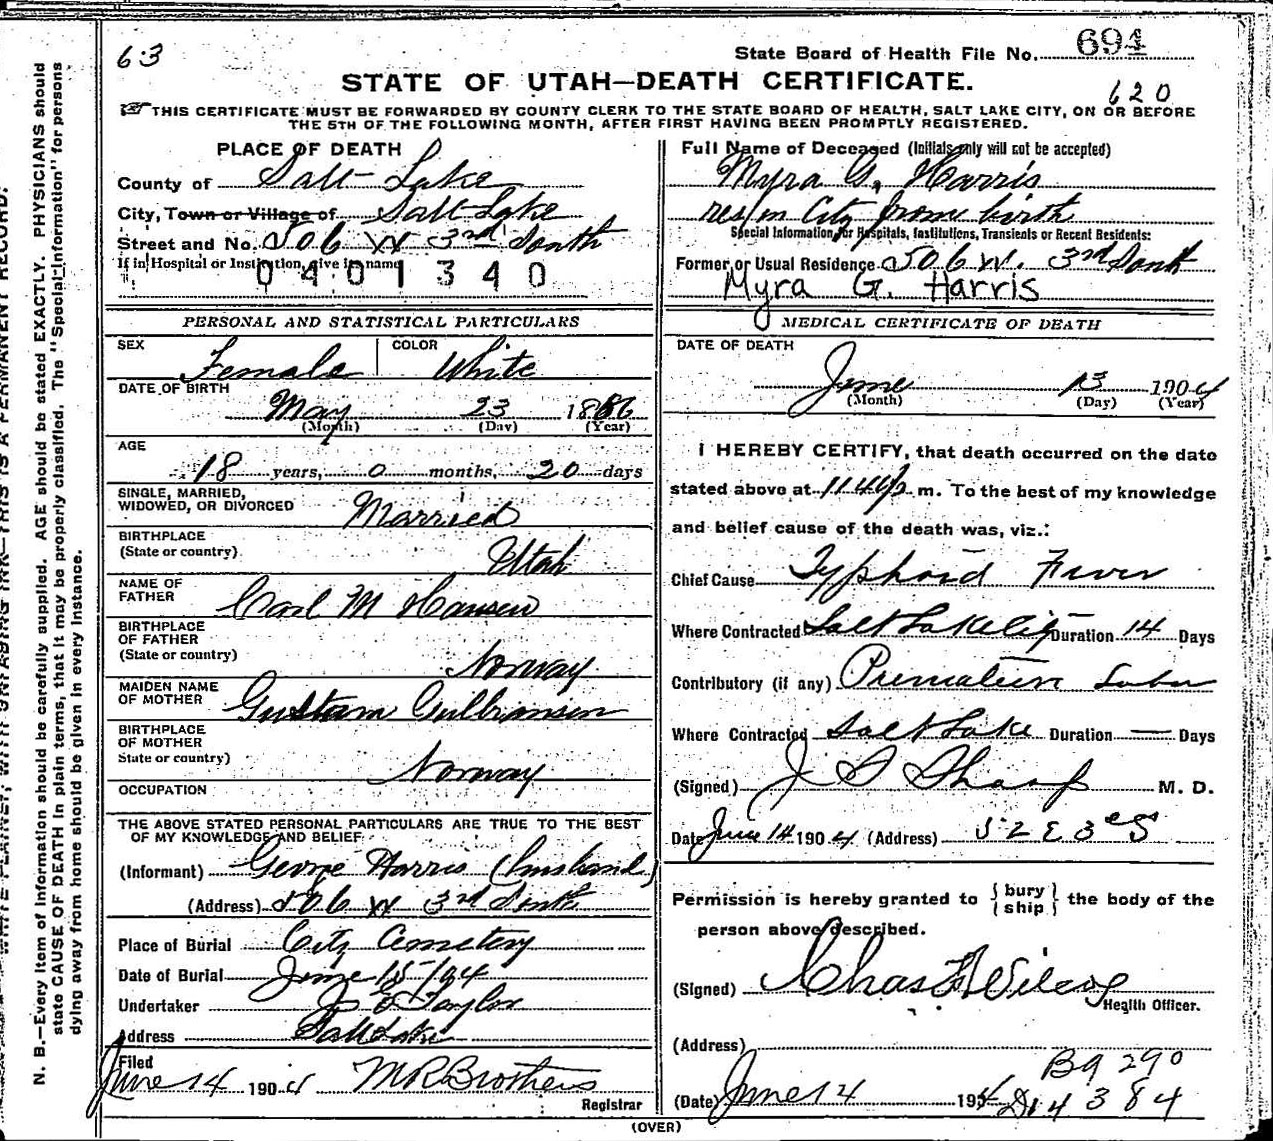 63
State Board of Health File No. 694
STATE OF UTAH—DEATH CERTIFICATE.
620
THIS CERTIFICATE MUST BE FORWARDED BY COUNTY CLERK TO THE STATE BOARD OF HEALTH, SALT LAKE CITY, ON OR BEFORE
THE 5TH OF THE FOLLOWING MONTH, AFTER FIRST HAVING BEEN PROMPTLY REGISTERED.
PLACE OF DEATH
County of Salt Lake
City, Town or Village of Salt Lake
Street and No. 506 W 3rd South
If in Hospital or Institution, give its name
0401340
Full Name of Deceased (Initials only will not be accepted)
Myra G. Harris
res in City from birth
Special Information for Hospitals, Institutions, Transients or Recent Residents:
Former or Usual Residence 506 W. 3rd South
Myra G. Harris
PERSONAL AND STATISTICAL PARTICULARS
SEX Female COLOR White
DATE OF BIRTH
May 23 1886
(Month) (Day) (Year)
AGE
18 years, 0 months, 20 days
SINGLE, MARRIED,
WIDOWED, OR DIVORCED Married
BIRTHPLACE
(State or country) Utah
NAME OF
FATHER Carl M Hansen
BIRTHPLACE
OF FATHER
(State or country) Norway
MAIDEN NAME
OF MOTHER Gustava Gulbransen
BIRTHPLACE
OF MOTHER
State or country) Norway
OCCUPATION
THE ABOVE STATED PERSONAL PARTICULARS ARE TRUE TO THE BEST
OF MY KNOWLEDGE AND BELIEF
(Informant) George Harris (husband)
(Address) 506 W 3rd South
Place of Burial City Cemetery
Date of Burial June 15-1904
Undertaker Taylor
Address Salt Lake
Filed
June 14 1904 M R Brothers
Registrar
MEDICAL CERTIFICATE OF DEATH
DATE OF DEATH
June 13 1904
(Month) (Day) (Year)
I HEREBY CERTIFY, that death occurred on the date
stated above at 11 40 p m. To the best of my knowledge
and belief cause of the death was, viz.:
Chief Cause Typhoid Fever
Where Contracted Salt Lake City Duration 14 Days
Contributory (if any) Premature Labor
Where Contracted Salt Lake Duration — Days
(Signed) J S Sharp M. D.
Date June 14 1904 (Address) 52 E 3rd S
Permission is hereby granted to {bury ship} the body of the
person above described.
(Signed) Chas Wilcox
Health Officer.
(Address)
B9 290
(Date) June 14 1904 D14 384
(OVER)
N. B.—Every item of information should be carefully supplied. AGE should be stated EXACTLY. PHYSICIANS should
state CAUSE OF DEATH in plain terms, that it may be properly classified. The "Special Information" for persons
dying away from home should be given in every instance.
THIS IS A PERMANENT RECORD.